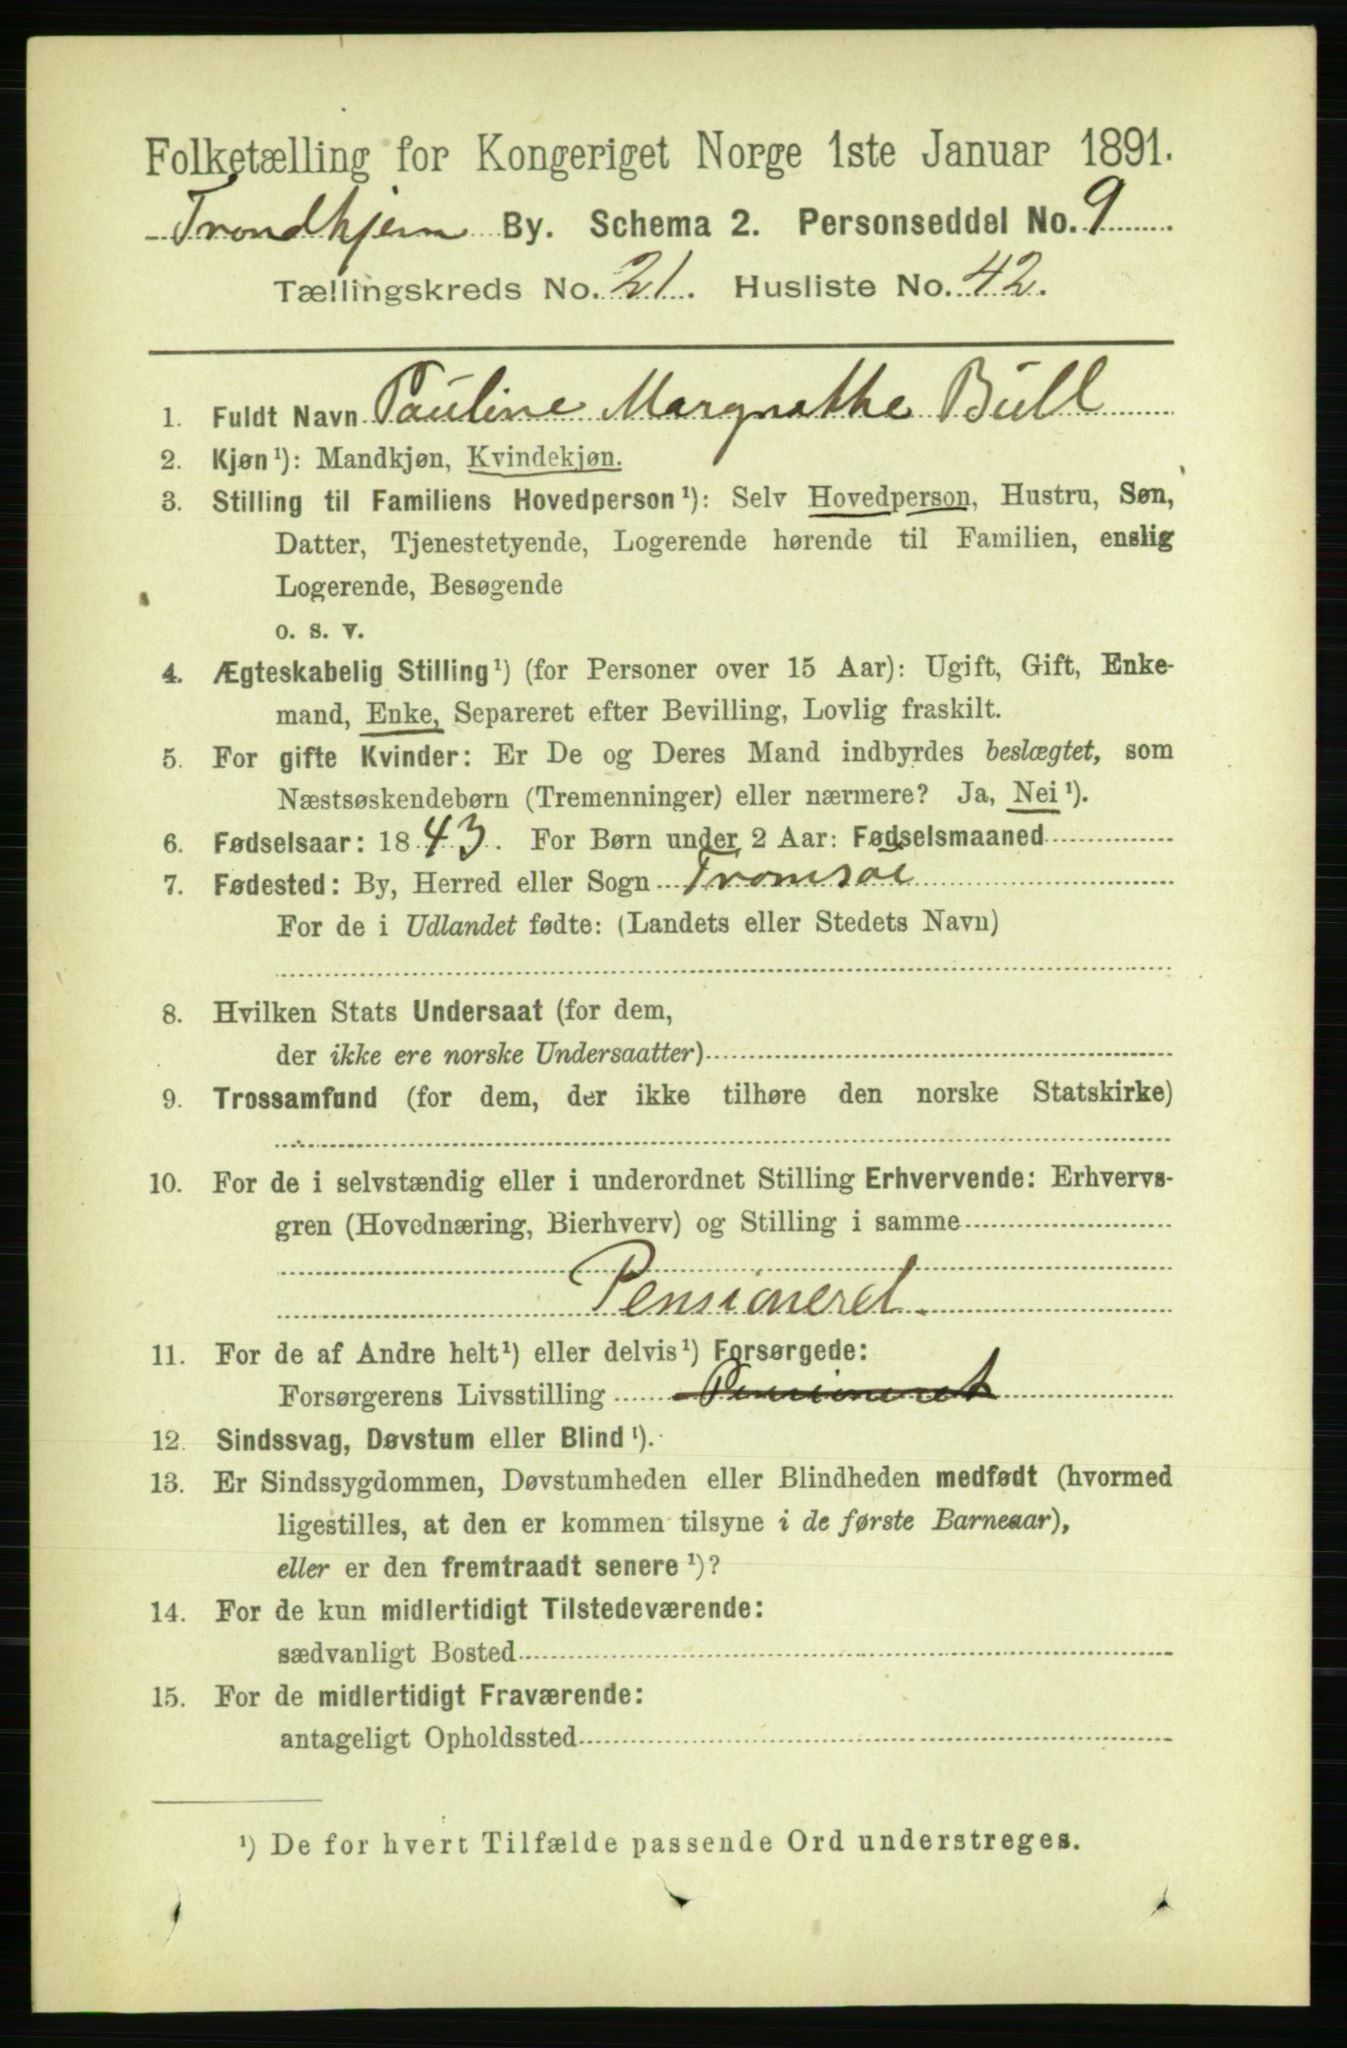 Folketælling for Kongeriget Norge 1ste Januar 1891.
Trondhjem By. Schema 2. Personseddel No. 9.
Tællingskreds No. 21. Husliste No. 42.
1. Fuldt Navn Pauline Margrethe Bull
2. Kjøn¹): Mandkjøn, Kvindekjøn.
3. Stilling til Familiens Hovedperson¹): Selv Hovedperson, Hustru, Søn,
Datter, Tjenestetyende, Logerende hørende til Familien, enslig
Logerende, Besøgende
o. s. v.
4. Ægteskabelig Stilling¹) (for Personer over 15 Aar): Ugift, Gift, Enke-
mand, Enke, Separeret efter Bevilling, Lovlig fraskilt.
5. For gifte Kvinder: Er De og Deres Mand indbyrdes beslægtet, som
Næstsøskendebørn (Tremenninger) eller nærmere? Ja, Nei¹).
6. Fødselsaar: 1843. For Børn under 2 Aar: Fødselsmaaned
7. Fødested: By, Herred eller Sogn Tromsøe
For de i Udlandet fødte: (Landets eller Stedets Navn)
8. Hvilken Stats Undersaat (for dem,
der ikke ere norske Undersaatter)
9. Trossamfund (for dem, der ikke tilhøre den norske Statskirke)
10. For de i selvstændig eller i underordnet Stilling Erhvervende: Erhvervs-
gren (Hovednæring, Bierhverv) og Stilling i samme
Pensioneret.
11. For de af Andre helt¹) eller delvis¹) Forsørgede:
Forsørgerens Livsstilling Pensioneret
12. Sindssvag, Døvstum eller Blind¹).
13. Er Sindssygdommen, Døvstumheden eller Blindheden medfødt (hvormed
ligestilles, at den er kommen tilsyne i de første Barneaar),
eller er den fremtraadt senere¹)?
14. For de kun midlertidigt Tilstedeværende:
sædvanligt Bosted
15. For de midlertidigt Fraværende:
antageligt Opholdssted
¹) De for hvert Tilfælde passende Ord understreges.